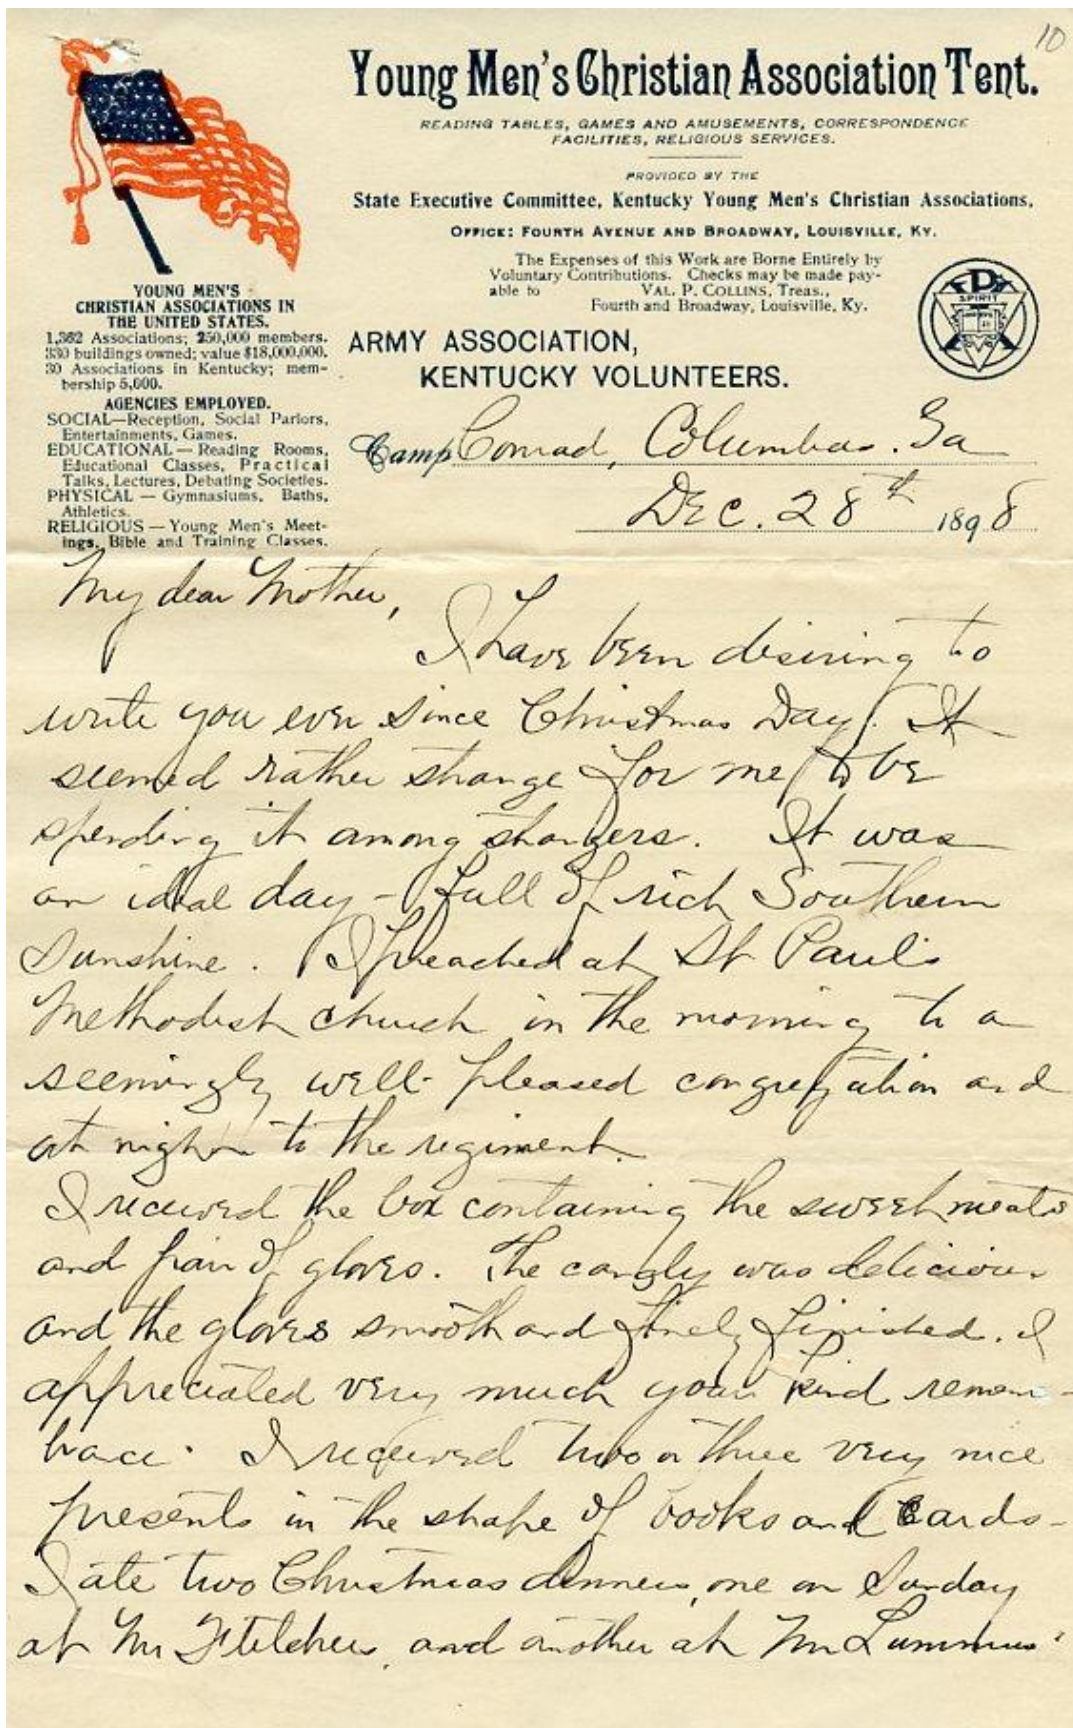 10
Young Men's Christian Association Tent.
READING TABLES, GAMES AND AMUSEMENTS, CORRESPONDENCE
FACILITIES, RELIGIOUS SERVICES.
PROVIDED BY THE
State Executive Committee, Kentucky Young Men's Christian Associations,
OFFICE: FOURTH AVENUE AND BROADWAY, LOUISVILLE, KY.
The Expenses of this Work are Borne Entirely by
Voluntary Contributions. Checks may be made pay-
able to VAL. P. COLLINS, Treas.,
Fourth and Broadway, Louisville, Ky.
SPIRIT
YOUNG MEN'S
CHRISTIAN ASSOCIATIONS IN
THE UNITED STATES.
1,362 Associations; 250,000 members.
330 buildings owned; value $18,000,000.
30 Associations in Kentucky; mem-
bership 5,000.
AGENCIES EMPLOYED.
SOCIAL—Reception, Social Parlors,
Entertainments, Games.
EDUCATIONAL — Reading Rooms,
Educational Classes, Practical
Talks, Lectures, Debating Societies.
PHYSICAL — Gymnasiums, Baths,
Athletics.
RELIGIOUS — Young Men's Meet-
ings, Bible and Training Classes.
ARMY ASSOCIATION,
KENTUCKY VOLUNTEERS.
Camp Conrad, Columbus. Ga
Dec. 28th 1898
My dear Mother,
I have been desiring to
write you ever since Christmas Day. It
seemed rather strange for me to be
spending it among strangers. It was
an ideal day - full of rich Southern
Sunshine. I preached at St Paul's
Methodist church in the morning to a
seemingly well-pleased congregation and
at night to the regiment.
I received the box containing the sweetmeats
and pair of gloves. The candy was delicious
and the gloves smooth and finely finished. I
appreciated very much your kind remem-
brace. I received two or three very nice
presents in the shape of books and cards-
I ate two Christmas dinners, one on Sunday
at Mr Fletchers, and another at Mr Lummus'